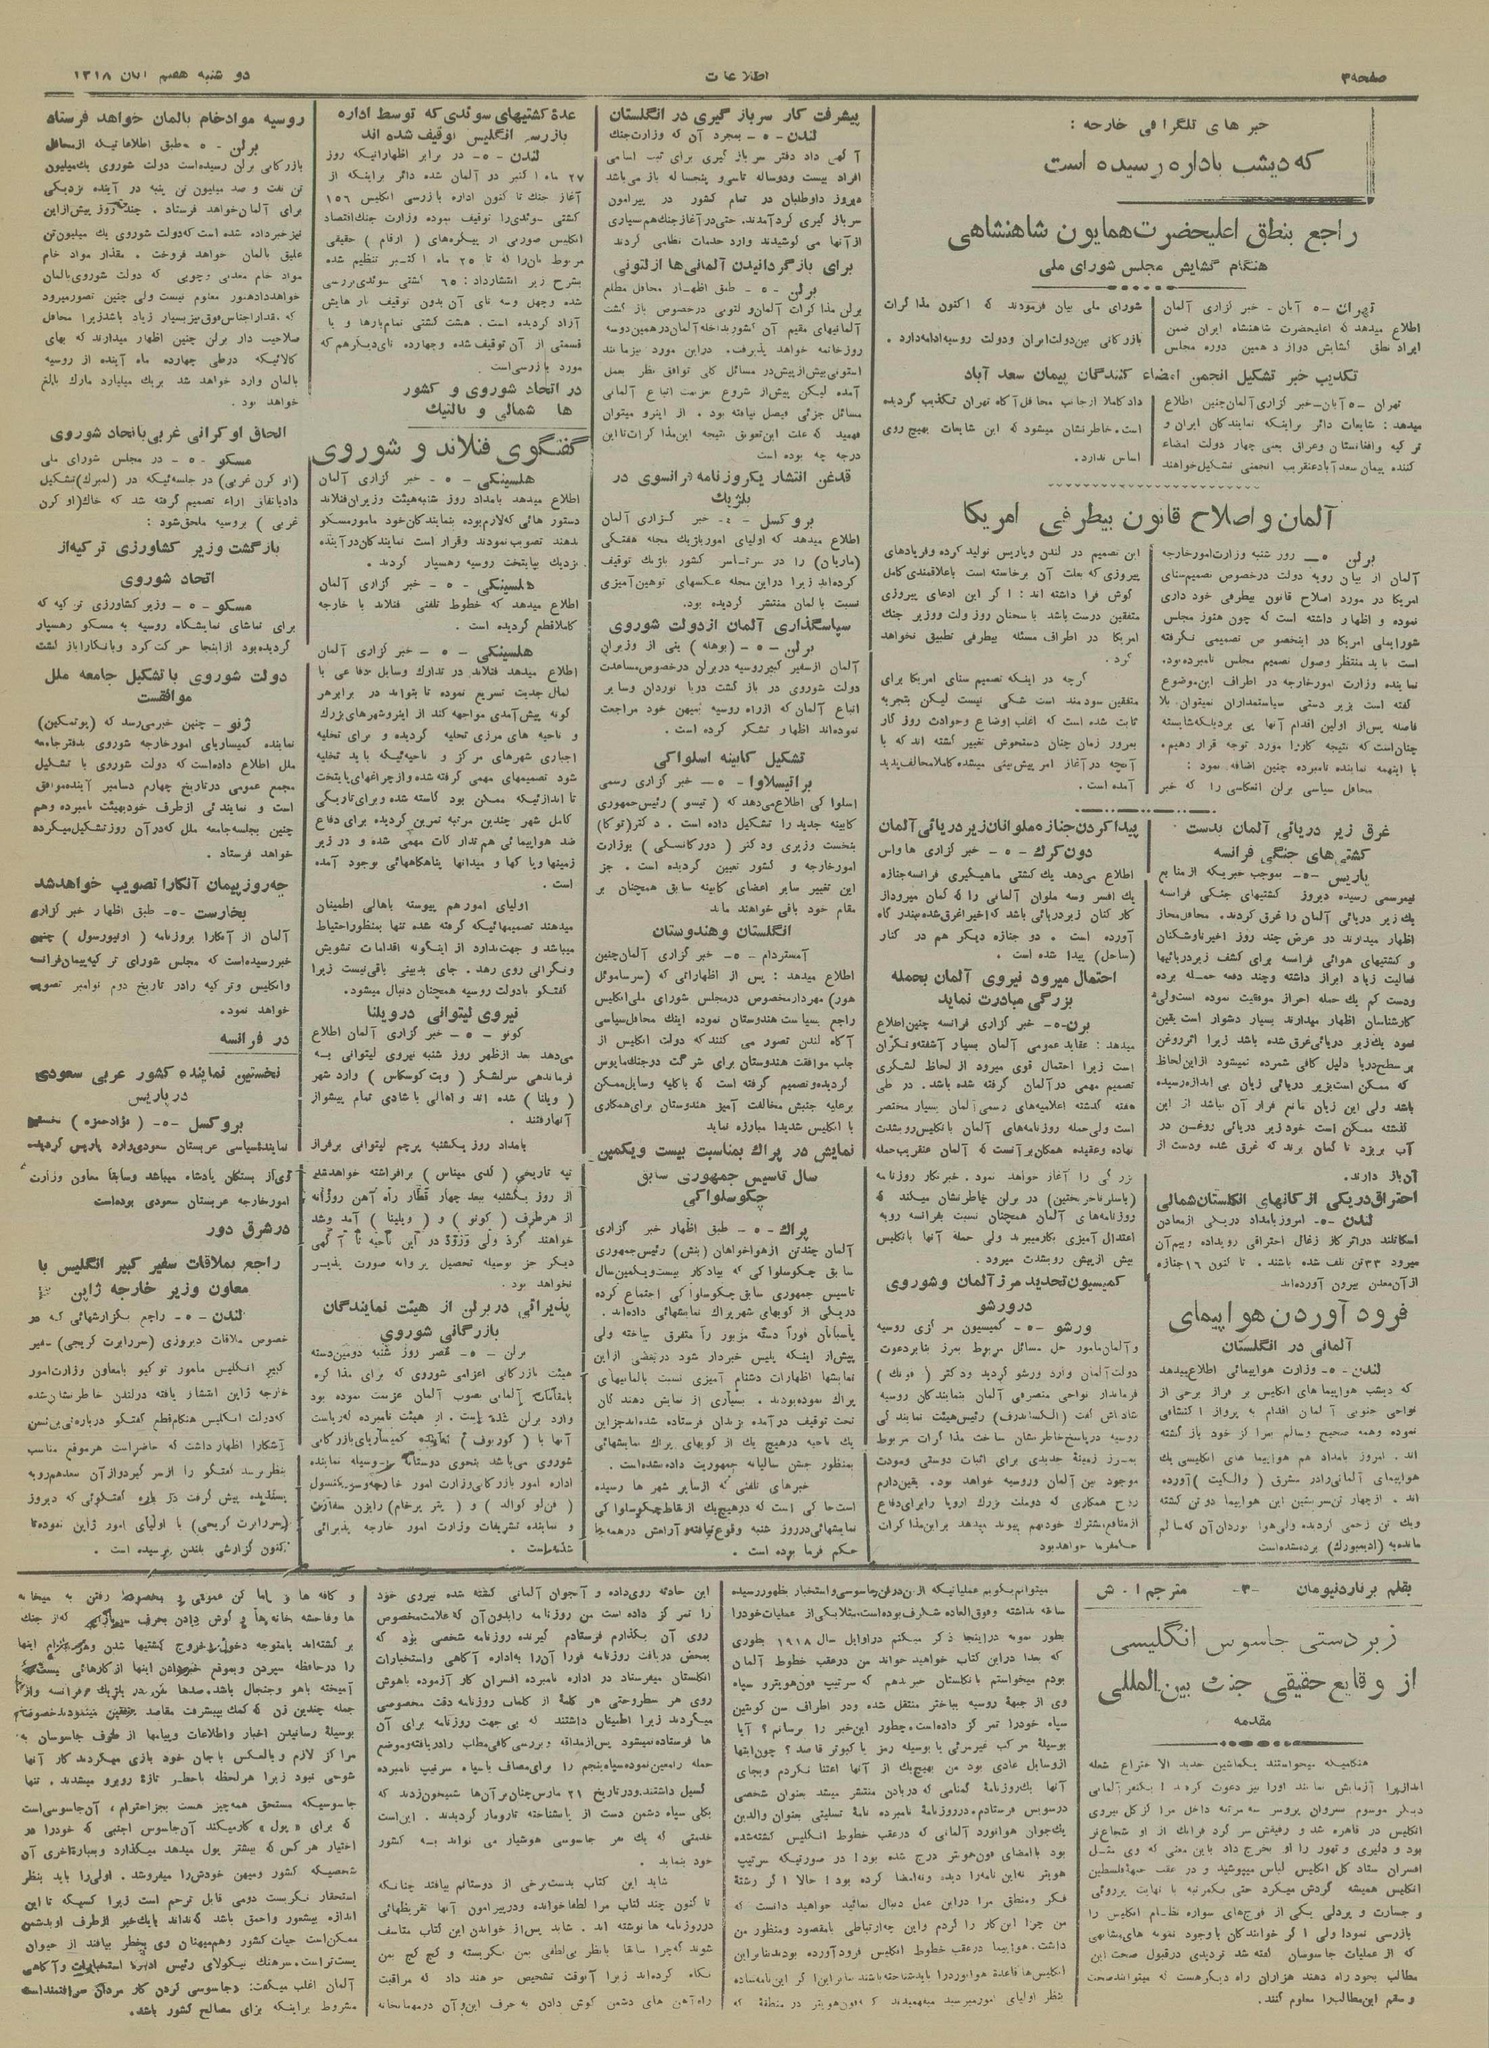 صفحه ۳
اطلاعات
دو شنبه هفتم آبان ۱۳۱۸
خبر های تلگرافی خارجه :
که دیشب باداره رسیده است
راجع بنطق اعلیحضرت همایون شاهنشاهی
هنگام گشایش مجلس شورای ملی
تهران -۵ آبان- خبر گزاری آلمان
اطلاع میدهد که اعلیحضرت شاهنشاه ایران ضمن
ایراد نطق گشایش دوازدهمین دوره مجلس
شورای ملی بیان فرمودند که اکنون مذاکرات
بازرگانی بین دولت ایران ودولت روسیه ادامه دارد .
تکذیب خبر تشکیل انجمن امضاء کنندگان پیمان سعد آباد
تهران -۵ آبان- خبر گزاری آلمان چنین اطلاع
میدهد : شایعات دائر براینکه نمایندگان ایران و
ترکیه وافغانستان وعراق یعنی چهار دولت امضاء
کننده پیمان سعدآباد عنقریب انجمنی تشکیل خواهند
داد کاملا از جانب محافل آگاه تهران تکذیب گردیده
است. خاطر نشان میشود که این شایعات بهیچ روی
اساس ندارد.
آلمان و اصلاح قانون بیطرفی امریکا
برلن -۵- روز شنبه وزارت امورخارجه
آلمان از بیان رویه دولت درخصوص تصمیم سنای
امریکا در مورد اصلاح قانون بیطرفی خود داری
نموده و اظهار داشته است که چون هنوز مجلس
شورایملی امریکا در اینخصوص تصمیمی نگرفته
است باید منتظر وصول تصمیم مجلس نامبرده بود.
نماینده وزارت امورخارجه در اطراف این موضوع
گفته است بزیر دستی سیاستمداران نمیتوان بلا
فاصله پس از اولین اقدام آنها پی بردبلکه شایسته
چنان است که نتیجه کار را مورد توجه قرار دهیم.
با اینهمه نماینده نامبرده چنین اضافه نمود :
محافل سیاسی برلن انعکاسی را که خبر
این تصمیم در لندن وپاریس تولید کرده وفریادهای
پیروزی که بعلت آن برخاسته است باعلاقمندی کامل
گوش فرا داشته اند : اگر این ادعای پیروزی
متفقین درست باشد با سخنان روزولت ووزیر جنگ
امریکا در اطراف مسئله بیطرفی تطبیق نخواهد
کرد .
گرچه در اینکه تصمیم سنای امریکا برای
متفقین سودمند است شکی نیست لیکن بتجربه
ثابت شده است که اغلب اوضاع وحوادث روزگار
بمرور زمان چنان دستخوش تغییر گشته اند که با
آنچه در آغاز امر پیش بینی میشده کاملا مخالف پدید
آمده است .
غرق زیر دریائی آلمان بدست
کشتی های جنگی فرانسه
پاریس -۵- بموجب خبریکه از منابع
نیمرسمی رسیده دیروز کشتیهای جنگی فرانسه
یک زیر دریائی آلمان را غرق کردند. محافل مجاز
اظهار میدارند در عرض چند روز اخیر ناوشکنان
و کشتیهای هوائی فرانسه برای کشف زیردریائیها
فعالیت زیاد ابراز داشته وچند دفعه حمله برده
ودست کم یک حمله احراز موفقیت نموده است ولی
کارشناسان اظهار میدارند بسیار دشوار است یقین
نمود یک زیر دریائی غرق شده باشد زیرا اثر روغن
بر سطح دریا دلیل کافی شمرده نمیشود از این لحاظ
که ممکن است بزیر دریائی زیان بی اندازه رسیده
باشد ولی این زیان مانع فرار آن نباشد از این
گذشته ممکن است خود زیر دریائی روغن در
آب بریزد تا گمان برند که غرق شده ودست از
آن باز دارند.
احتراق دریکی از کانهای انگلستان شمالی
لندن -۵- امروز بامداد دریکی ازمعادن
اسکاتلند دراثر گاز زغال احتراقی رویداده وبیم آن
میرود ۳۳ تن تلف شده باشند . تا کنون ۱۶ جنازه
از آن معدن بیرون آورده اند
فرود آوردن هواپیمای
آلمانی در انگلستان
لندن -۵- وزارت هواپیمائی اطلاع میدهد
که دیشب هواپیما های انگلیس بر فراز برخی از
نواحی جنوبی آلمان اقدام به پرواز اکتشافی
نموده وهمه صحیح وسالم بمراکز خود بازگشته
اند . امروز بامداد هم هواپیما های انگلیسی یک
هواپیمای آلمانی رادر مشرق ( والکیت ) آورده
اند . ازچهار تن سرنشین این هواپیما دو تن کشته
ویک تن زخمی گردیده ولی هوا نوردان آن که سالم
مانده به (ادیمبورک) برده شده است
پیدا کردن جنازه ملوانان زیر دریائی آلمان
دون کرک -۵- خبر گزاری هاواس
اطلاع می دهد یک کشتی ماهیگیری فرانسه جنازه
یک افسر وسه ملوان آلمانی را که گمان میرود از
کارکنان زیر دریائی باشد که اخیر اغرق شده ببندرگاه
آورده است . دو جنازه دیگر هم در کنار
(ساحل) پیدا شده است .
احتمال میرود نیروی آلمان بحمله
بزرگی مبادرت نماید
برن -۵- خبر گزاری فرانسه چنین اطلاع
میدهد : عقاید عمومی آلمان بسیار آشفته ونگران
است زیرا احتمال قوی میرود از لحاظ لشکری
تصمیم مهمی درآلمان گرفته شده باشد. در طی
هفته گذشته اعلامیه های رسمی آلمان بسیار مختصر
است ولی حمله روزنامه های آلمان بانگلیس روبشدت
نهاده وعقیده همگان برآنست که آلمان عنقریب حمله
بزرگی را آغاز خواهد نمود. خبرنگار روزنامه
(باسلر ناخریختن) در برلن خاطر نشان میکند که
روزنامه های آلمان همچنان نسبت بفرانسه رویه
اعتدال آمیزی بکار میبرند ولی حمله آنها بانگلیس
بیش از پیش روبشدت میرود.
کمیسیون تحدید مرز آلمان و شوروی
درورشو
ورشو -۵- کمیسیون مرکزی روسیه
وآلمان مامور حل مسائل مربوط بمرز بنا بدعوت
دولت آلمان وارد ورشو گردید ودکتر ( فرنک )
فرماندار نواحی متصرفی آلمان بنمایندگان روسیه
شادباش گفت (الکساندرف) رئیس هیئت نمایندگی
روسیه درپاسخ خاطر نشان ساخت مذاکرات مربوط
بمرز زمینهٔ جدیدی برای اثبات دوستی ومودت
موجود بین آلمان وروسیه خواهد بود. یقین دارم
روح همکاری که دوملت بزرک اروپا را برای دفاع
از منافع مشترک خود بهم پیوند میدهد بر این مذاکرات
حکمفرما خواهد بود
پیشرفت کار سرباز گیری در انگلستان
لندن -۵- بمجرد آن که وزارت جنگ
آگهی داد دفتر سرباز گیری برای ثبت اسامی
افراد بیست ودوساله تاسی و پنجساله باز می باشد
دیروز داوطلبان در تمام کشور در پیرامون
سرباز گیری گردآمدند. حتی درآغاز جنگ هم سپاری
ازآنها می کوشیدند وارد خدمات نظامی گردند
برای بازگردانیدن آلمانی ها از لتونی
برلن -۵- طبق اظهار محافل مطلع
برلن مذاکرات آلمان و لتونی درخصوص بازگشت
آلمانیهای مقیم آن کشور بداخله آلمان درهمین دوسه
روزخاتمه خواهد پذیرفت. دراین مورد نیز مانند
استونی بیش از پیش در مسائل کلی توافق نظر بعمل
آمده لیکن پیش از شروع عزیمت اتباع آلمانی
مسائل جزئی فیصل نیافته بود . از اینرو میتوان
فهمید که علت این تعویق نتیجه این مذاکرات تا این
درجه چه بوده است
قدغن انتشار یکروزنامه فرانسوی در
بلژیک
بروکسل -۵- خبر گزاری آلمان
اطلاع میدهد که اولیای امور بلژیک مجله هفتگی
(ماریان) را در سرتاسر کشور بلژیک توقیف
کرده اند زیرا دراین مجله عکسهای توهین آمیزی
نسبت بآلمان منتشر گردیده بود.
سپاسگذاری آلمان از دولت شوروی
برلن -۵- (بوهله) یکی از وزیران
آلمان از سفیر کبیر روسیه در برلن درخصوص مساعدت
دولت شوروی در بازگشت دریا نوردان وسایر
اتباع آلمان که ازراه روسیه بمیهن خود مراجعت
نموده اند اظهار تشکر کرده است .
تشکیل کابینه اسلواکی
براتیسلاوا -۵- خبر گزاری رسمی
اسلواکی اطلاع می دهد که ( تیسو ) رئیس جمهوری
کابینه جدید را تشکیل داده است . دکتر (توکا)
بنخست وزیری ودکتر ( دورکانسکی ) بوزارت
امورخارجه و کشور تعیین گردیده است . جز
این تغییر سایر اعضای کابینه سابق همچنان بر
مقام خود باقی خواهند ماند
انگلستان و هندوستان
آمستردام -۵- خبر گزاری آلمان چنین
اطلاع میدهد : پس از اظهاراتی که (سرساموئل
هور) مهردار مخصوص درمجلس شورای ملی انگلیس
راجع بسیاست هندوستان نموده اینک محافل سیاسی
آگاه لندن تصور می کنند که دولت انگلیس از
جلب موافقت هندوستان برای شرکت درجنگ مایوس
گردیده و تصمیم گرفته است که با کلیه وسایل ممکن
برعلیه جنبش مخالفت آمیز هندوستان برای همکاری
با انگلیس شدیدا مبارزه نماید
نمایش در پراک بمناسبت بیست و یکمین
سال تاسیس جمهوری سابق
چکوسلواکی
پراک -۵- طبق اظهار خبر گزاری
آلمان چندتن ازهواخواهان (بنش) رئیس جمهوری
سابق چکوسلواکی که بیادگار بیست ویکمین سال
تاسیس جمهوری سابق چکوسلواکی اجتماع کرده
دریکی از کویهای شهر پراک نمایشهائی داده اند.
پاسبانان فورأ دسته مزبور را متفرق ساخته ولی
پیش از اینکه پلیس خبردار شود دربعضی از این
نمایشها اظهارات دشنام آمیزی نسبت بآلمانیهای
پراک نموده بودند. بسیاری از نمایش دهندگان
تحت توقیف درآمده بزندان فرستاده شده اند جز این
یک ناحیه درهیچ یک از کویهای پراک نمایشهائی
بمنظور جشن سالیانه جمهوریت داده نشده است.
خبرهای تلفنی که ازسایر شهر ها رسیده
است حاکی است که درهیچ یک از نقاط چکوسلواکی
نمایشهائی درروز شنبه وقوع نیافته وآرامش درهمه جا
حکم فرما بوده است .
عدهٔ کشتیهای سوئدی که توسط اداره
بازرسی انگلیس توقیف شده اند
لندن -۵- در برابر اظهاراتیکه روز
۲۷ ماه اکتبر در آلمان شده دائر براینکه از
آغاز جنگ تا کنون اداره بازرسی انگلیس ۱۵۶
کشتی سوئدی را توقیف نموده وزارت جنگ اقتصاد
انگلیس صورتی از پیکره های ( ارقام ) حقیقی
مربوط بآن را که تا ۲۵ ماه اکتبر تنظیم شده
بشرح زیر انتشارداد : ۶۵ کشتی سوئدی بررسی
شده وچهل وسه تای آن بدون توقیف بارهایش
آزاد گردیده است. هشت کشتی تمام بارها و یا
قسمتی از آن توقیف شده وچهارده تای دیگرهم که
مورد بازرسی است.
در اتحاد شوروی و کشور
ها شمالی و بالتیک
گفتگوی فنلاند و شوروی
هلسینکی -۵- خبر گزاری آلمان
اطلاع میدهد بامداد روز شنبه هیئت وزیران فنلاند
دستور هائی که لازم بوده بنمایندگان خود مامور مسکو
بدهند تصویب نمودند وقرار است نمایندگان درآینده
نزدیک بپایتخت روسیه رهسپار گردند.
هلسینکی -۵- خبر گزاری آلمان
اطلاع میدهد که خطوط تلفنی فنلاند با خارجه
کاملا قطع گردیده است .
هلسینکی -۵- خبر گزاری آلمان
اطلاع میدهد فنلاند در تدارک وسایل دفاعی با
کمال جدیت تسریع نموده تا بتواند در برابر هر
گونه پیش آمدی مواجهه کند از اینرو شهرهای بزرگ
و ناحیه های مرزی تخلیه گردیده و برای تخلیه
اجباری شهرهای مرکز و ناحیه ئیکه باید تخلیه
شود تصمیمهای مهمی گرفته شده وازچراغهای پایتخت
تا اندازئیکه ممکن بود کاسته شده وبرای تاریکی
کامل شهر چندین مرتبه تمرین گردیده برای دفاع
ضد هواپیمائی هم تدارکات مهمی شده و در زیر
زمینها وپارکها و میدانها پناهگاههائی بوجود آمده
است .
اولیای امورهم پیوسته باهالی اطمینان
میدهند تصمیمهائیکه گرفته شده تنها بمنظور احتیاط
میباشد و جهت ندارد از اینگونه اقدامات تشویش
ونگرانی روی رهد . جای بدبینی باقی نیست زیرا
گفتگو بادولت روسیه همچنان دنبال میشود.
نیروی لیتوانی درویلنا
کونو -۵- خبر گزاری آلمان اطلاع
می دهد بعد ازظهر روز شنبه نیروی لیتوانی به
فرماندهی سرلشگر ( ویت کوسکاس ) وارد شهر
( ویلنا ) شده اند واهالی باشادی تمام پیشواز
آنهارفتند .
بامداد روز یکشنبه پرچم لیتوانی برفراز
تپه تاریخی ( گدی میناس ) برافراشته خواهدشد
از روز یکشنبه ببعد چهار قطار راه آهن روزانه
از هرطرف ( کونو ) و ( ویلینا ) آمد وشد
خواهند کرد ولی ورود در این ناحیه تا آگهی
دیگر جز بوسیله تحصیل پروانه صورت پذیر
نخواهد بود.
پذیرائی دربرلن از هیئت نمایندگان
بازرگانی شوروی
برلن -۵- عصر روز شنبه دومین دسته
هیئت بازرگانی اعزامی شوروی که برای مذاکره
بامقامات آلمانی بصوب آلمان عزیمت نموده بود
وارد برلن شده است . از هیئت نامبرده که ریاست
آنها با ( کوربوف ) نماینده کمیساریای بازرگانی
شوروی می باشد بنحوی دوستانه بوسیله نماینده
اداره امور بازرگانی وزارت امور خارجه وسر کنسول
( فن لو کوالد ) و ( پتر برخام ) رایزن سفارت
و نماینده تشریفات وزارت امور خارجه پذیرائی
شده است .
روسیه مواد خام بآلمان خواهد فرستاد
برلن -۵- طبق اطلاعاتیکه ازمحافل
بازرگانی برلن رسیده است دولت شوروی یک میلیون
تن نفت و صد میلیون تن پنبه در آینده نزدیکی
برای آلمان خواهد فرستاد . چند روز پیش ازاین
نیز خبر داده شده است که دولت شوروی یک میلیون تن
علیق بآلمان خواهد فروخت . مقدار مواد خام
مواد خام معدنی وچوبی که دولت شوروی بآلمان
خواهد داد هنوز معلوم نیست ولی چنین تصور میرود
که مقدار اجناس فوق نیز بسیار زیاد باشد زیرا محافل
صلاحیت دار برلن چنین اظهار میدارند که بهای
کالائیکه درطی چهارده ماه آینده از روسیه
بآلمان وارد خواهد شد بریک میلیارد مارک بالغ
خواهد بود.
الحاق اوکرانی غربی باتحاد شوروی
مسکو -۵- در مجلس شورای ملی
(اوکرن غربی) در جلسه ئیکه در (لمبرک) تشکیل
داد باتفاق آراء تصمیم گرفته شد که خاک (اوکرن
غربی ) بروسیه ملحق شود :
بازگشت وزیر کشاورزی ترکیه از
اتحاد شوروی
مسکو -۵- وزیر کشاورزی ترکیه که
برای تماشای نمایشگاه روسیه به مسکو رهسپار
گردیده بود از اینجا حرکت کرد وبآنکارا باز گشت
دولت شوروی با تشکیل جامعه ملل
موافقست
ژنو - چنین خبر می رسد که (پوتمکین)
نماینده کمیساریای امورخارجه شوروی بدفتر جامعه
ملل اطلاع داده است که دولت شوروی با تشکیل
مجمع عمومی درتاریخ چهارم دسامبر آینده موافق
است و نمایندگی ازطرف خود بهیئت نامبرده وهم
چنین بجلسه جامعه ملل که درآن روز تشکیل میگردد
خواهد فرستاد.
چه روز پیمان آنکارا تصویب خواهد شد
بخارست -۵- طبق اظهار خبر گزاری
آلمان از آنکارا بروزنامه ( اونیورسول ) چنین
خبر رسیده است که مجلس شورای ترکیه پیمان فرانسه
وانگلیس وترکیه رادر تاریخ دوم نوامبر تصویب
خواهد نمود.
در فرانسه
نخستین نماینده کشور عربی سعودی
درپاریس
بروکسل -۵- ( فؤاد حمزه ) نخستین
نمایندهٔ سیاسی عربستان سعودی وارد پاریس گردیده
وی از بستگان پادشاه میباشد وسابقا معاون وزارت
امورخارجه عربستان سعودی بوده است
در شرق دور
راجع بملاقات سفیر کبیر انگلیس با
معاون وزیر خارجه ژاپن
لندن -۵- راجع بگزارشهائی که در
خصوص ملاقات دیروزی (سر رابرت کریجی) سفیر
کبیر انگلیس مامور توکیو بامعاون وزارت امور
خارجه ژاپن انتشار یافته درلندن خاطر نشان شده
که دولت انگلیس هنگام قطع گفتگو درباره تی ین تسن
آشکارا اظهار داشت که حاضر است هرموقع مناسب
بنظر برسد گفتگو را از سر گیرد از آن بعد هم رویه
پسندیده پیش گرفت ذکر باره گفتگوئی که دیروز
(سر رابرت کریجی) با اولیای امور ژاپن نموده تا
کنون گزارشی بلندن نرسیده است .
بقلم برناردنیومان -۳- مترجم ا . ش
زبردستی جاسوس انگلیسی
از وقایع حقیقی جنگ بین المللی
مقدمه
هنگامیکه میخواستند یکماشین جدید الاختراع شعله
اندازیرا آزمایش نمایند اورا نیز دعوت کردند ! یکنفر آلمانی
دیگر موسوم بسروان پروسر سه مرتبه داخل مرا کز کل نیروی
انگلیس در قاهره شد و رفیقش سر گرد فرانک از او شجاع تر
بود و دلیری و تهور را او بخرج داد باین معنی که وی مثل
افسران ستاد کل انگلیس لباس میپوشید و در عقب جبهه فلسطین
انگلیس همیشه گردش میکرد حتی یکمرتبه با نهایت پرروئی
و جسارت و پردلی یکی از فوج های سواره نظام انگلیس را
بازرسی نمود! ولی اگر خوانندگان باوجود نمونه های مشابهی
که از عملیات جاسوسان گفته شد تردیدی درقبول صحت این
مطالب بخود راه دهند هزاران راه دیگر هست که میتوانند صحت
و سقم این مطالب را معلوم کنند.
میتوانم بگویم عملیاتیکه ازین درفن جاسوسی واستخبار بظهور رسیده
سابقه نداشته وفوق العاده شگرف بوده است. مثلا یکی از عملیات خودرا
بطور نمونه دراینجا ذکر میکنم دراوایل سال ۱۹۱۸ بطوری
که بعدا دراین کتاب خواهید خواند من درعقب خطوط آلمان
بودم میخواستم بانگلستان خبر بدهم که سرتیپ فون هویترو سپاه
وی از جبههٔ روسیه بباختر منتقل شده ودر اطراف سن کونتین
سپاه خودرا تمر کز داده است. چطور این خبر را برسانم ؟ آیا
بوسیله مرکب غیر مرئی یا بوسیله رمز یا کبوتر قاصد ؟ چون اینها
از وسایل عادی بود من بهیچیک از آنها اعتنا نکردم وبجای
آنها یک روزنامهٔ گمنامی که دربادن منتشر میشد بعنوان شخصی
درسویس فرستادم. درروزنامهٔ نامبرده نامهٔ تسلیتی بعنوان والدین
یک جوان هوانورد آلمانی که درعقب خطوط انگلیس کشته شده
بود باامضای فون هویتر درج شده بود! در صورتیکه سرتیپ
هویتر نه این نامه را دیده ونه امضا کرده بود! حالا اگر رشتهٔ
فکر ومنطق مرا دراین عمل دنبال نمائید خواهید دانست که
من چرا این کار را کردم واین چه ارتباطی بامقصود ومنظور من
داشت. هواپیما درعقب خطوط انگلیس فرود آورده بودند بنابراین
انگلیس ها قاعدة هوانورد را باید شناخته باشند بنابراین اگر این نامه ساده
بنظر اولیای امور میرسید میفهمیدند که فون هویتر در منطقهٔ که
این حادثه روی داده و آنجوان آلمانی کشته شده نیروی خود
را تمر کز داده است من روزنامه را بدون آن که علامت مخصوص
روی آن بگذارم فرستادم گیرنده روزنامه شخصی بود که
بمحض دریافت روزنامه فورا آن را به اداره آگاهی واستخبارات
انگلستان میفرستاد در اداره نامبرده افسران کار آزموده باهوش
روی هر سطر وحتی هر کلمهٔ از کلمات روزنامه دقت مخصوصی
میکردند زیرا اطمینان داشتند که بی جهت روزنامه برای آن
ها فرستاده نمیشود پس از مداقه و بررسی کافی مطلب را دریافته وموضع
حمله رامعین نموده سپاه پنجم را برای مصاف باسپاه سرتیپ نامبرده
گسیل داشتند. ودر تاریخ ۲۱ مارس چنان بر آن ها شبیخون زدند که
بکلی سپاه دشمن دست از پا نشناخته تارومار گردیدند . این است
خدمتی که یک نفر جاسوس هوشیار می تواند به کشور
خود بنماید .
شاید این کتاب بدست برخی از دوستانم بیافتد چنانکه
تا کنون چند کتاب مرا لطفا خوانده ودرپیرامون آنها تقریظهائی
درروزنامه ها نوشته اند . شاید پس از خواندن این کتاب متاسف
شوند که چرا سابقا بانظر بی لطفی بمن نگریسته و کج کج بمن
نگاه کرده اند زیرا آنوقت تشخیص خواهند داد که مراقبت
راه آهن های دشمن گوش دادن به حرف این وآن درمهمانخانه
و کافه ها و اما کن عمومی و بخصوص رفتن به میخانه
ها وفاحشه خانه ها و گوش دادن بحرف سربازانی که از جنگ
بر گشته اند یا متوجه دخول و خروج کشتیها شدن و همه اینها
را درحافظه سپردن وبموقع خبر دادن اینها از کارهائی نیست که
آمیخته باهو وجنجال باشد. صدها نفر در بلژیک و فرانسه واز
جمله چندین زن که کمک بپیشرفت مقاصد متفقین مینمودند خصوصا
بوسیلهٔ رسانیدن اخبار واطلاعات وپیامها از طرف جاسوسان به
مرا کز لازم و بالعکس با جان خود بازی میکردند کار آنها
شوخی نبود زیرا هر لحظه باخطر تازهٔ روبرو میشدند. تنها
جاسوسیکه مستحق همه چیز هست بجز احترام ، آن جاسوسی است
که برای «پول» کار میکند آن جاسوس اجنبی که خودرا در
اختیار هر کس که بیشتر پول میدهد میگذارد وبعبارة اخری آن
شخصیکه کشور ومیهن خودش را میفروشد. اولی را باید بنظر
استحقار نگریست دومی قابل ترحم است زیرا کسیکه تا این
اندازه بیشعور واحمق باشد که نداند با یک خبر از طرف او بدشمن
ممکن است حیات کشور وهم میهنان وی بخطر بیافتد از حیوان
پست تر است. سرهنگ نیکولای رئیس اداره استخبارات و آگاهی
آلمان اغلب میگفت: «جاسوسی کردن کار مردان شرافتمند است
مشروط براینکه برای مصالح کشور باشد.